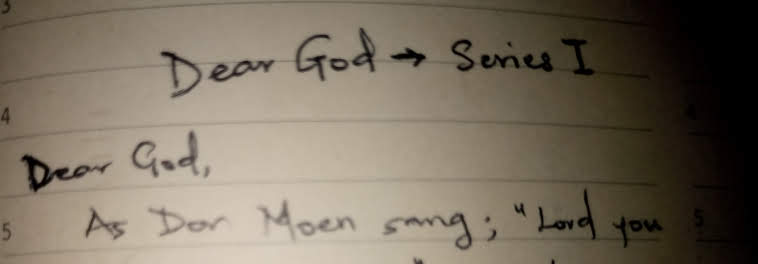 3
Dear God → Series I
4
Dear God,
5 As Don Moen sang; "Lord you 5